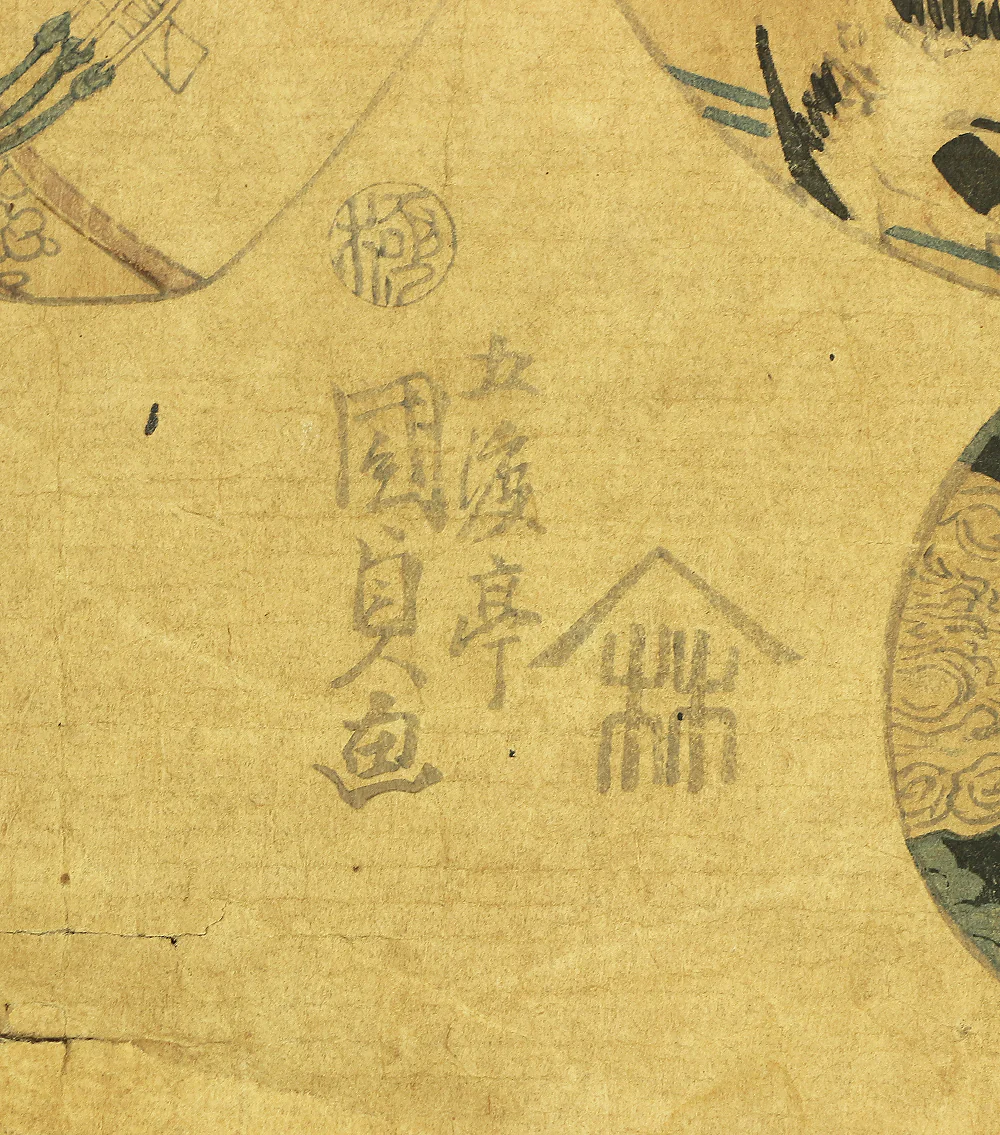 極
五渡亭
國貞画